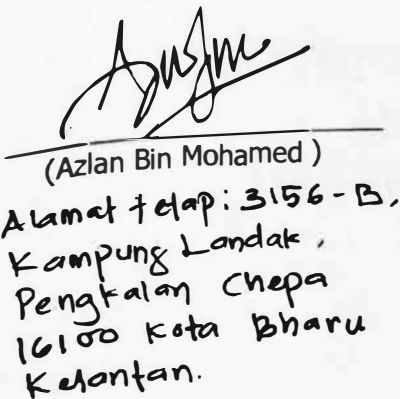 (Azlan Bin Mohamed )
Alamat tetap: 3156-B,
Kampung Landak,
Pengkalan Chepa
16100 Kota Bharu
Kelantan.